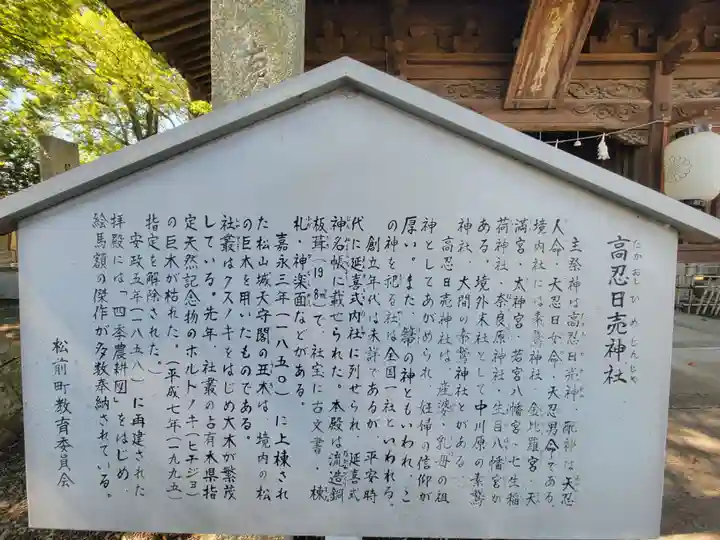 高忍日売神社
たかおしひめじんじゃ
主祭神は高忍日売神、配神は天忍
人命・天忍日女命・天忍男命である。
境内社には素鵞神社・金比羅宮・天
満宮・太神宮・若宮八幡宮・七生稲
荷神社・奈良原神社・生目八幡宮が
ある。境外末社として中川原の素鵞
神社、大間の素鵞神社とがある。
高忍日売神社は、産婆・乳母の祖
神としてあがめられ、妊婦の信仰が
厚い。また、箒の神ともいわれ、こ
の神を祀る社は全国一社といわれる。
創立年代は未詳であるが、平安時
代に延喜式内社に列せられ、延喜式
神名帳に載せられた。本殿は流造銅
板葺（19.8㎡）で、社宝に古文書・棟
札・神楽面などがある。
嘉永三年（一八五〇）に上棟され
た松山城天守閣の丑木は、境内の松
の巨木を用いたものである。
社叢はクスノキをはじめ大木が繁茂
している。先年、社叢の古有木県指
定天然記念物のホルトノキ（ヒヂジョ）
の巨木が枯れた。（平成七年（一九九五）
指定を解除された）
安政五年（一八五八）に再建された
拝殿には「四季農耕図」をはじめ、
絵馬額の傑作が多数奉納されている。
松前町教育委員会